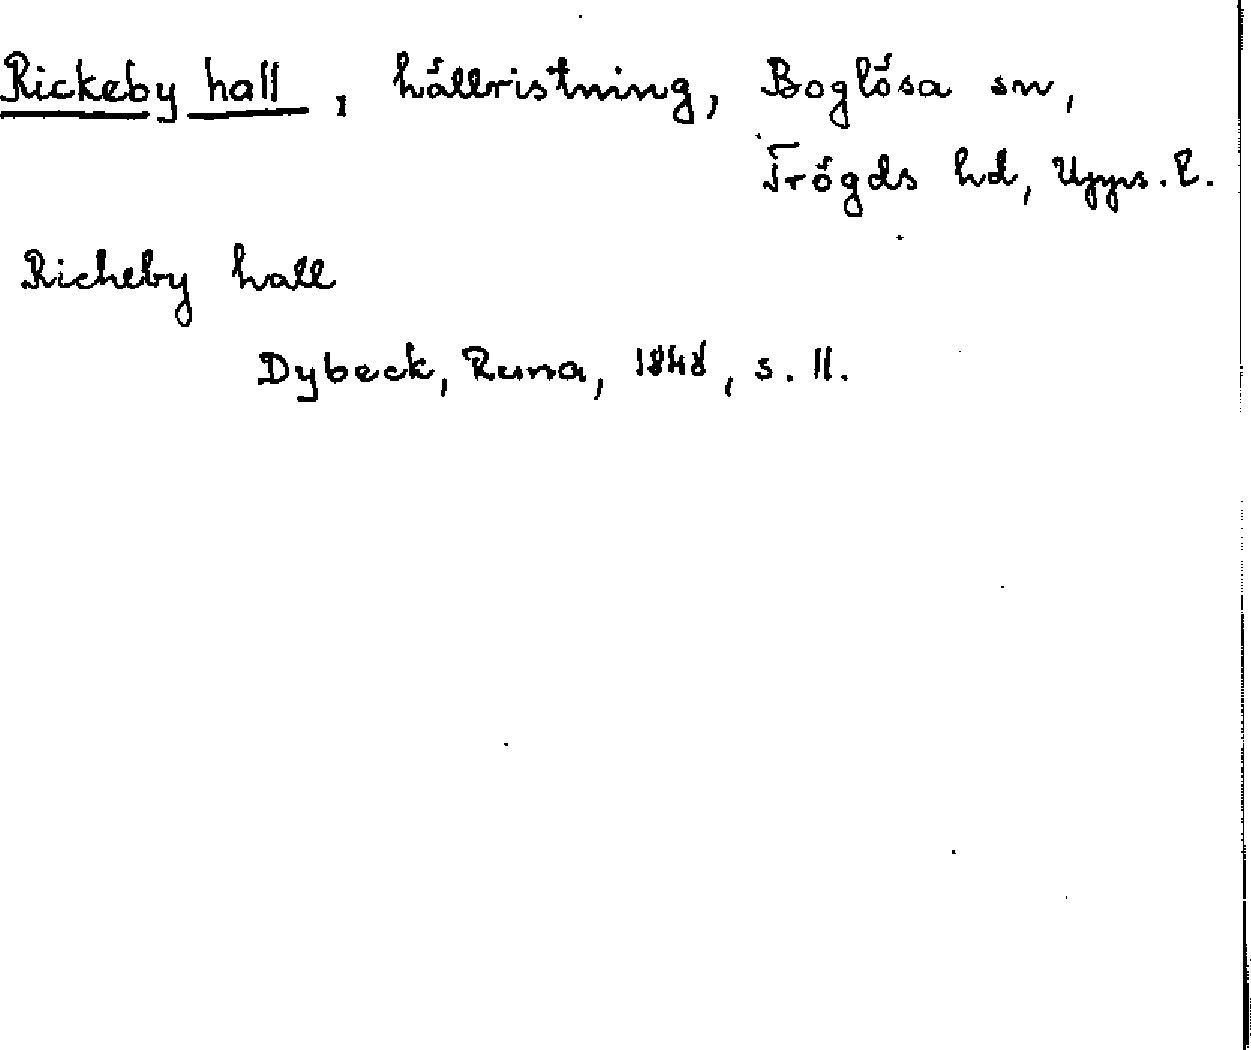 Rickeby hall, hällristning, Boglösa sn,
Trögds hd, Upps. l.
Rickeby hall
Dybeck, Runa, 1848, s. 11.